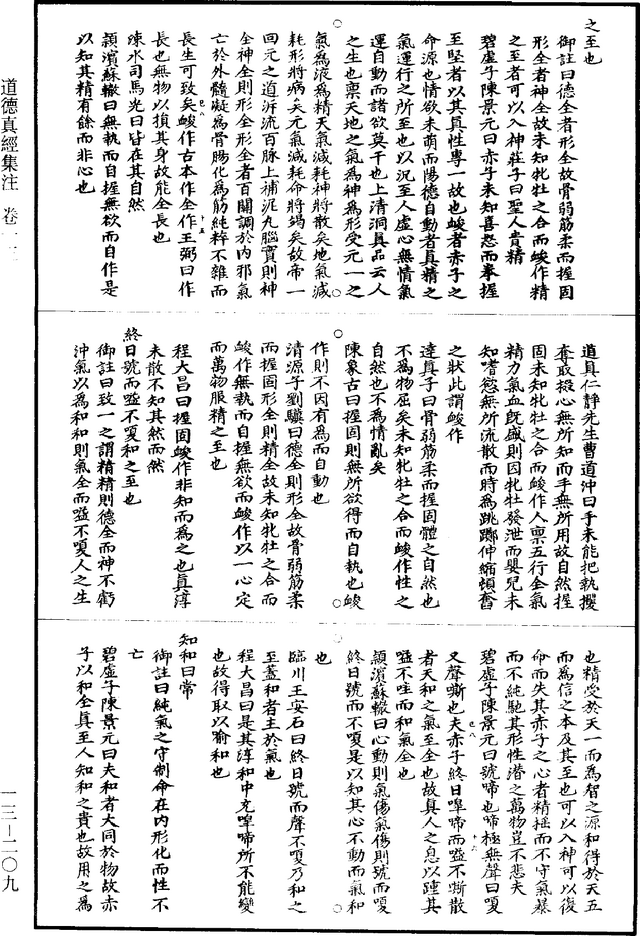 之至也
御註曰德全者形全故骨弱筋柔而握固
形全者神全故未知牝牡之合而峻作精
之至者可以入神莊子曰聖人貴精
碧虛子陳景元曰赤子未知喜怒而拳握
至堅者以其真性專一故也峻者赤子之
命源也情欲未萌而陽德自動者真精之
氣運行之所至也以況至人虛心無情氣
運自動而諸欲莫干也上清洞真品云人
之生也稟天地之氣為神為形受元一之
氣為液為精天氣減耗神將散矣地氣減
耗形將病矣元氣減耗命將竭矣故帝一
回元之道泝流百脉上補泥丸腦實則神
全神全則形全形全者百關調於內邪氣
亡於外髓凝為骨腸化為筋純粹不雜而
長生可致矣峻作古本作全作王弼曰作
長也無物以損其身故能全長也
涑水司馬光曰皆在其自然
潁濱蘇轍曰無執而自握無欲而自作是
以知其精有餘而非心也
道真仁靜先生曹道沖曰手未能把執攫
奪取擬心無所知而手無所用故自然握
固未知牝牡之合而峻作人稟五行全氣
精力氣血旣盛則因牝牡發泄而嬰兒未
知嗜慾無所流散而時為跳躑伸縮頓奮
之狀此謂峻作
達真子曰骨弱筋柔而握固體之自然也
不為物屈矣未知牝牡之合而峻作性之
自然也不為情亂矣
陳象古曰握固則無所欲得而自執也峻
作則不因有為而自動也
清源子劉驥曰德全則形全故骨弱筋柔
而握固形全則精全故未知牝牡之合而
峻作無執而自握無欲而峻作以一心定
而萬物服精之至也
程大昌曰握固峻作非知而為之也真淳
未散不知其然而然
終日號而嗌不嗄和之至也
御註曰致一之謂精精則德全而神不虧
沖氣以為和和則氣全而嗌不嗄人之生
也精受於天一而為智之源和得於天五
而為信之本及其至也可以入神可以復
命而失其赤子之心者精搖而不守氣暴
而不純馳其形性潛之萬物豈不悲夫
碧虛子陳景元曰號啼也啼極無聲曰嗄
又聲嘶也夫赤子終日嘷啼而嗌不嘶散
者天和之氣至全也故真人之息以踵其
嗌不哇而和氣全也
潁濱蘇轍曰心動則氣傷氣傷則號而嗄
終日號而不嗄是以知其心不動而氣和
也
臨川王安石曰終日號而聲不嗄乃和之
至蓋和者主於氣也
程大昌曰是其淳和中充嘷啼所不能變
也故得取以喻和也
知和曰常
御註曰純氣之守制命在內形化而性不
亡
碧虛子陳景元曰夫和者大同於物故赤
子以和全真至人知和之貴也故用之為
道德真經集注 卷一三
一三—二〇九